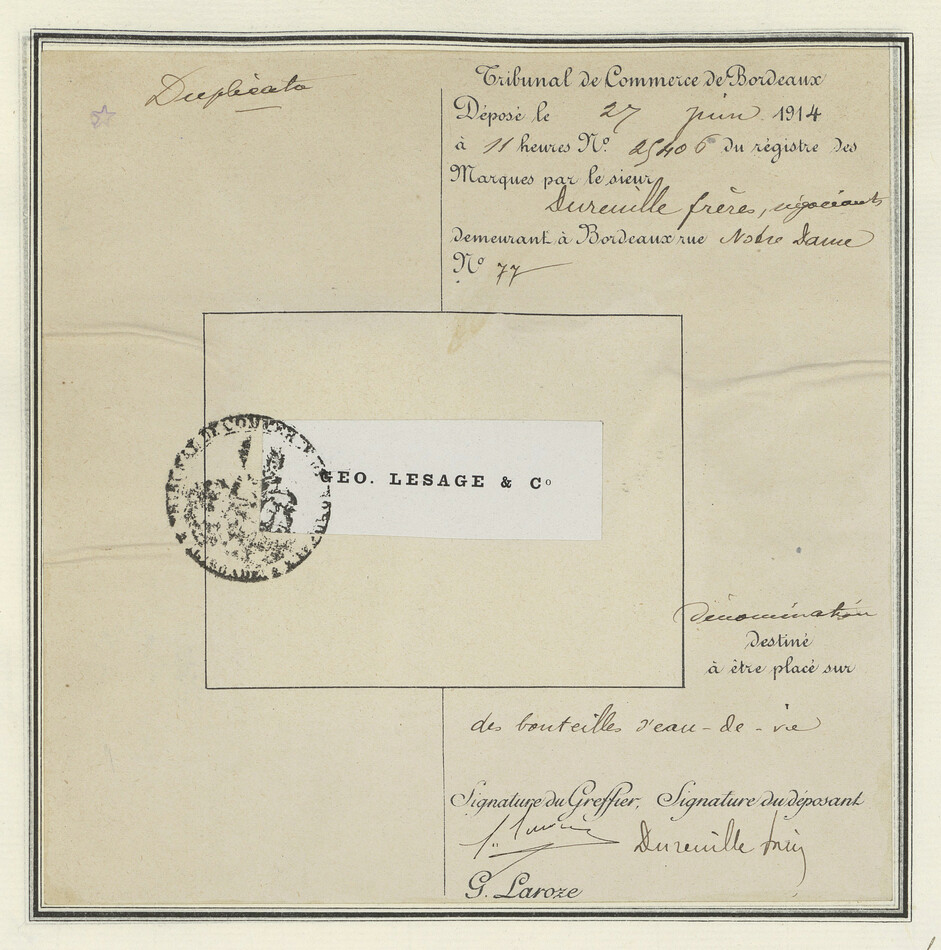 Duplicata
Tribunal de Commerce de Bordeaux
Déposé le 27 juin 1914
à 11 heures Nº 25406 du régistre des
Marques par le sieur
Dureuille frères, négociants
demeurant à Bordeaux rue Notre Dame
Nº 77
GEO. LESAGE & Cº
dénomination
Destiné
à être placé sur
des bouteilles d'eau-de-vie
Signature du Greffier, Signature du déposant
Dureuille
G. Laroze